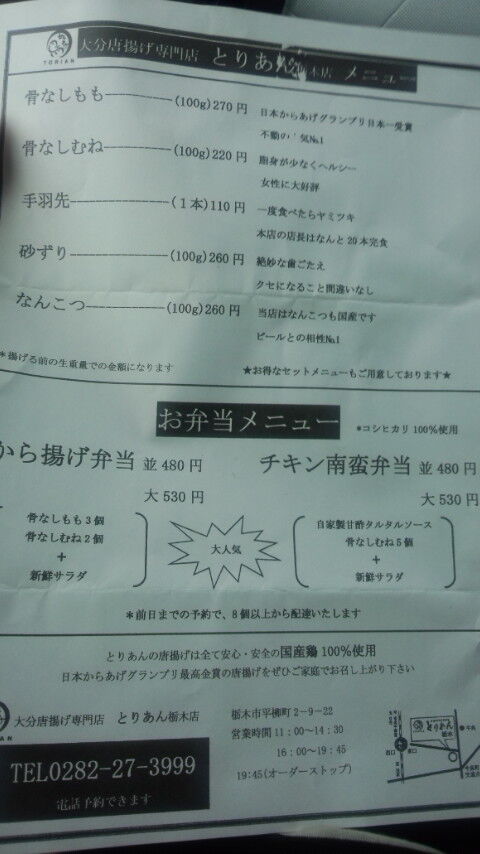 TORIAN
大分唐揚げ専門店 とりあん 木店 メニュー
骨なしもも (100g)270円
日本からあげグランプリ日本一受賞
不動の 気№1
骨なしむね (100g)220円
脂身が少なくヘルシー
女性に大好評
手羽先 (1本)110円
一度食べたらヤミツキ
本店の店長はなんと20本完食
砂ずり (100g)260円
絶妙な歯ごたえ
クセになること間違いなし
なんこつ (100g)260円
当店はなんこつも国産です
ビールとの相性№1
*揚げる前の生重量での金額になります
★お得なセットメニューもご用意しております★
お弁当メニュー
*コシヒカリ100%使用
から揚げ弁当 並480円
大530円
チキン南蛮弁当 並480円
大530円
骨なしもも3個
骨なしむね2個
+
新鮮サラダ
大人気
自家製甘酢タルタルソース
骨なしむね5個
+
新鮮サラダ
*前日までの予約で、8個以上から配達いたします
とりあんの唐揚げは全て安心・安全の国産鶏100%使用
日本からあげグランプリ最高金賞の唐揚げをぜひご家庭でお召し上がり下さい
大分唐揚げ専門店 とりあん栃木店
栃木市平柳町2-9-22
営業時間11:00~14:30
16:00~19:45
19:45(オーダーストップ)
TEL0282-27-3999
電話予約できます
とりあん
栃木
西口
東口